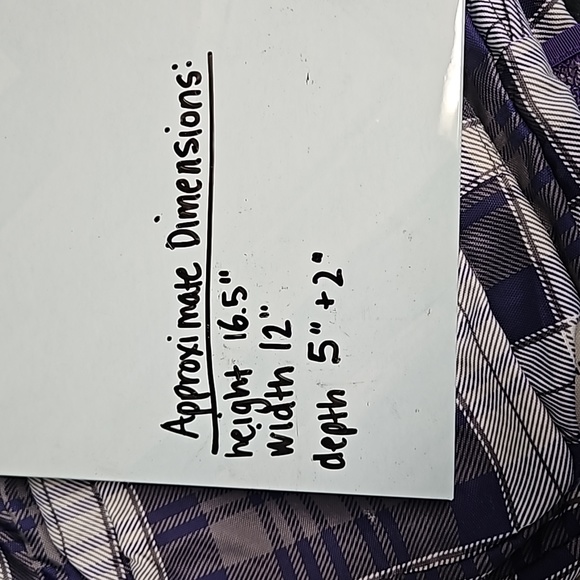 Approximate Dimensions:
height 16.5"
width 12"
depth 5" + 2"